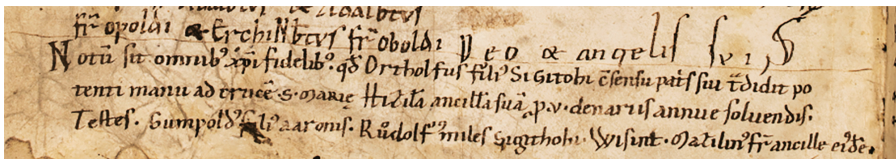 fr̄ opoldi & Erchinb̄tus fr̄ oboldi p eo & angelis
Notū sit omnibꝰ xp̄i fidelibꝰ. qđ Ortholfus filiꝰ Sigitohi c̄sensu pat̄s sui t̄didit po
tenti manu ad crucē .S. Marię Hizila ancillā suā .p.v. denariis annue soluendis.
Testes. Gumpoldꝰ filiꝰ aaronis. Růdolfꝰ miles Sigithohi. Wisint. Mazilinꝰ fr̄ ancille eiđe.